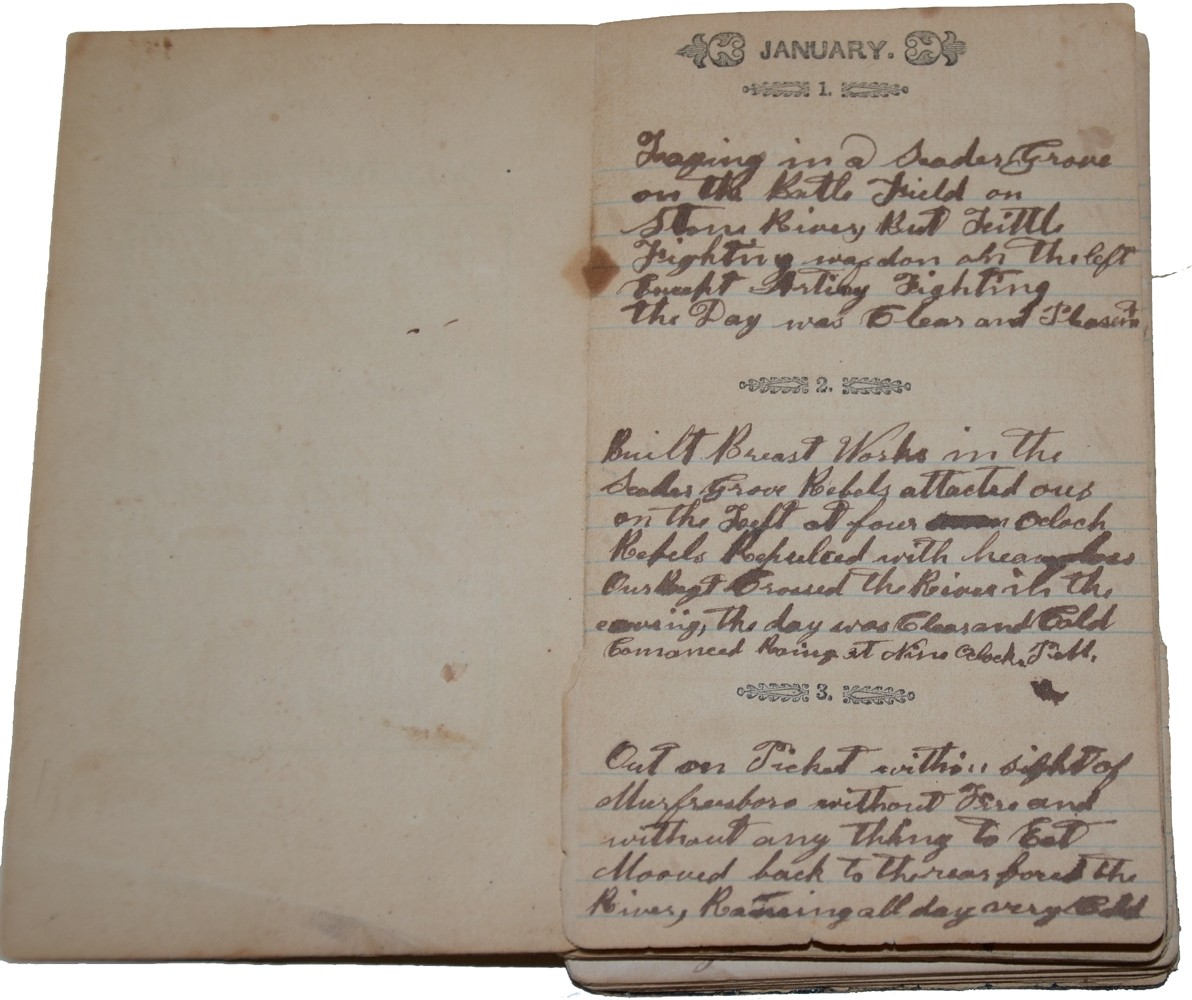 JANUARY.
1.
Laying in a Seader Grove
on the Batle Field on
Stone River, But Little
Fighting was don on the left
Except Artiley Fighting
the Day was Clear and Pleasent
2.
Built Breast Works in the
Seader Grove Rebels attacted ous
on the Left at four oclock
Rebels Repulced with heavy loss
Our Regt Crossed the River in the
evening, the day was Clear and Cold
Comanced Raing at Nine Oclock.
3.
Out on Picket within sight of
Murfreesboro without Fire and
without any thing to Eat
Mooved back to the rear fored the
River, Raineing all day very Cold